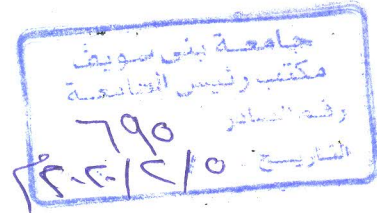 جامعة بنى سويف
مكتب رئيس الجامعة
رقم الصادر ٦٩٥
التاريخ ٢٠٢٠/٢/٥